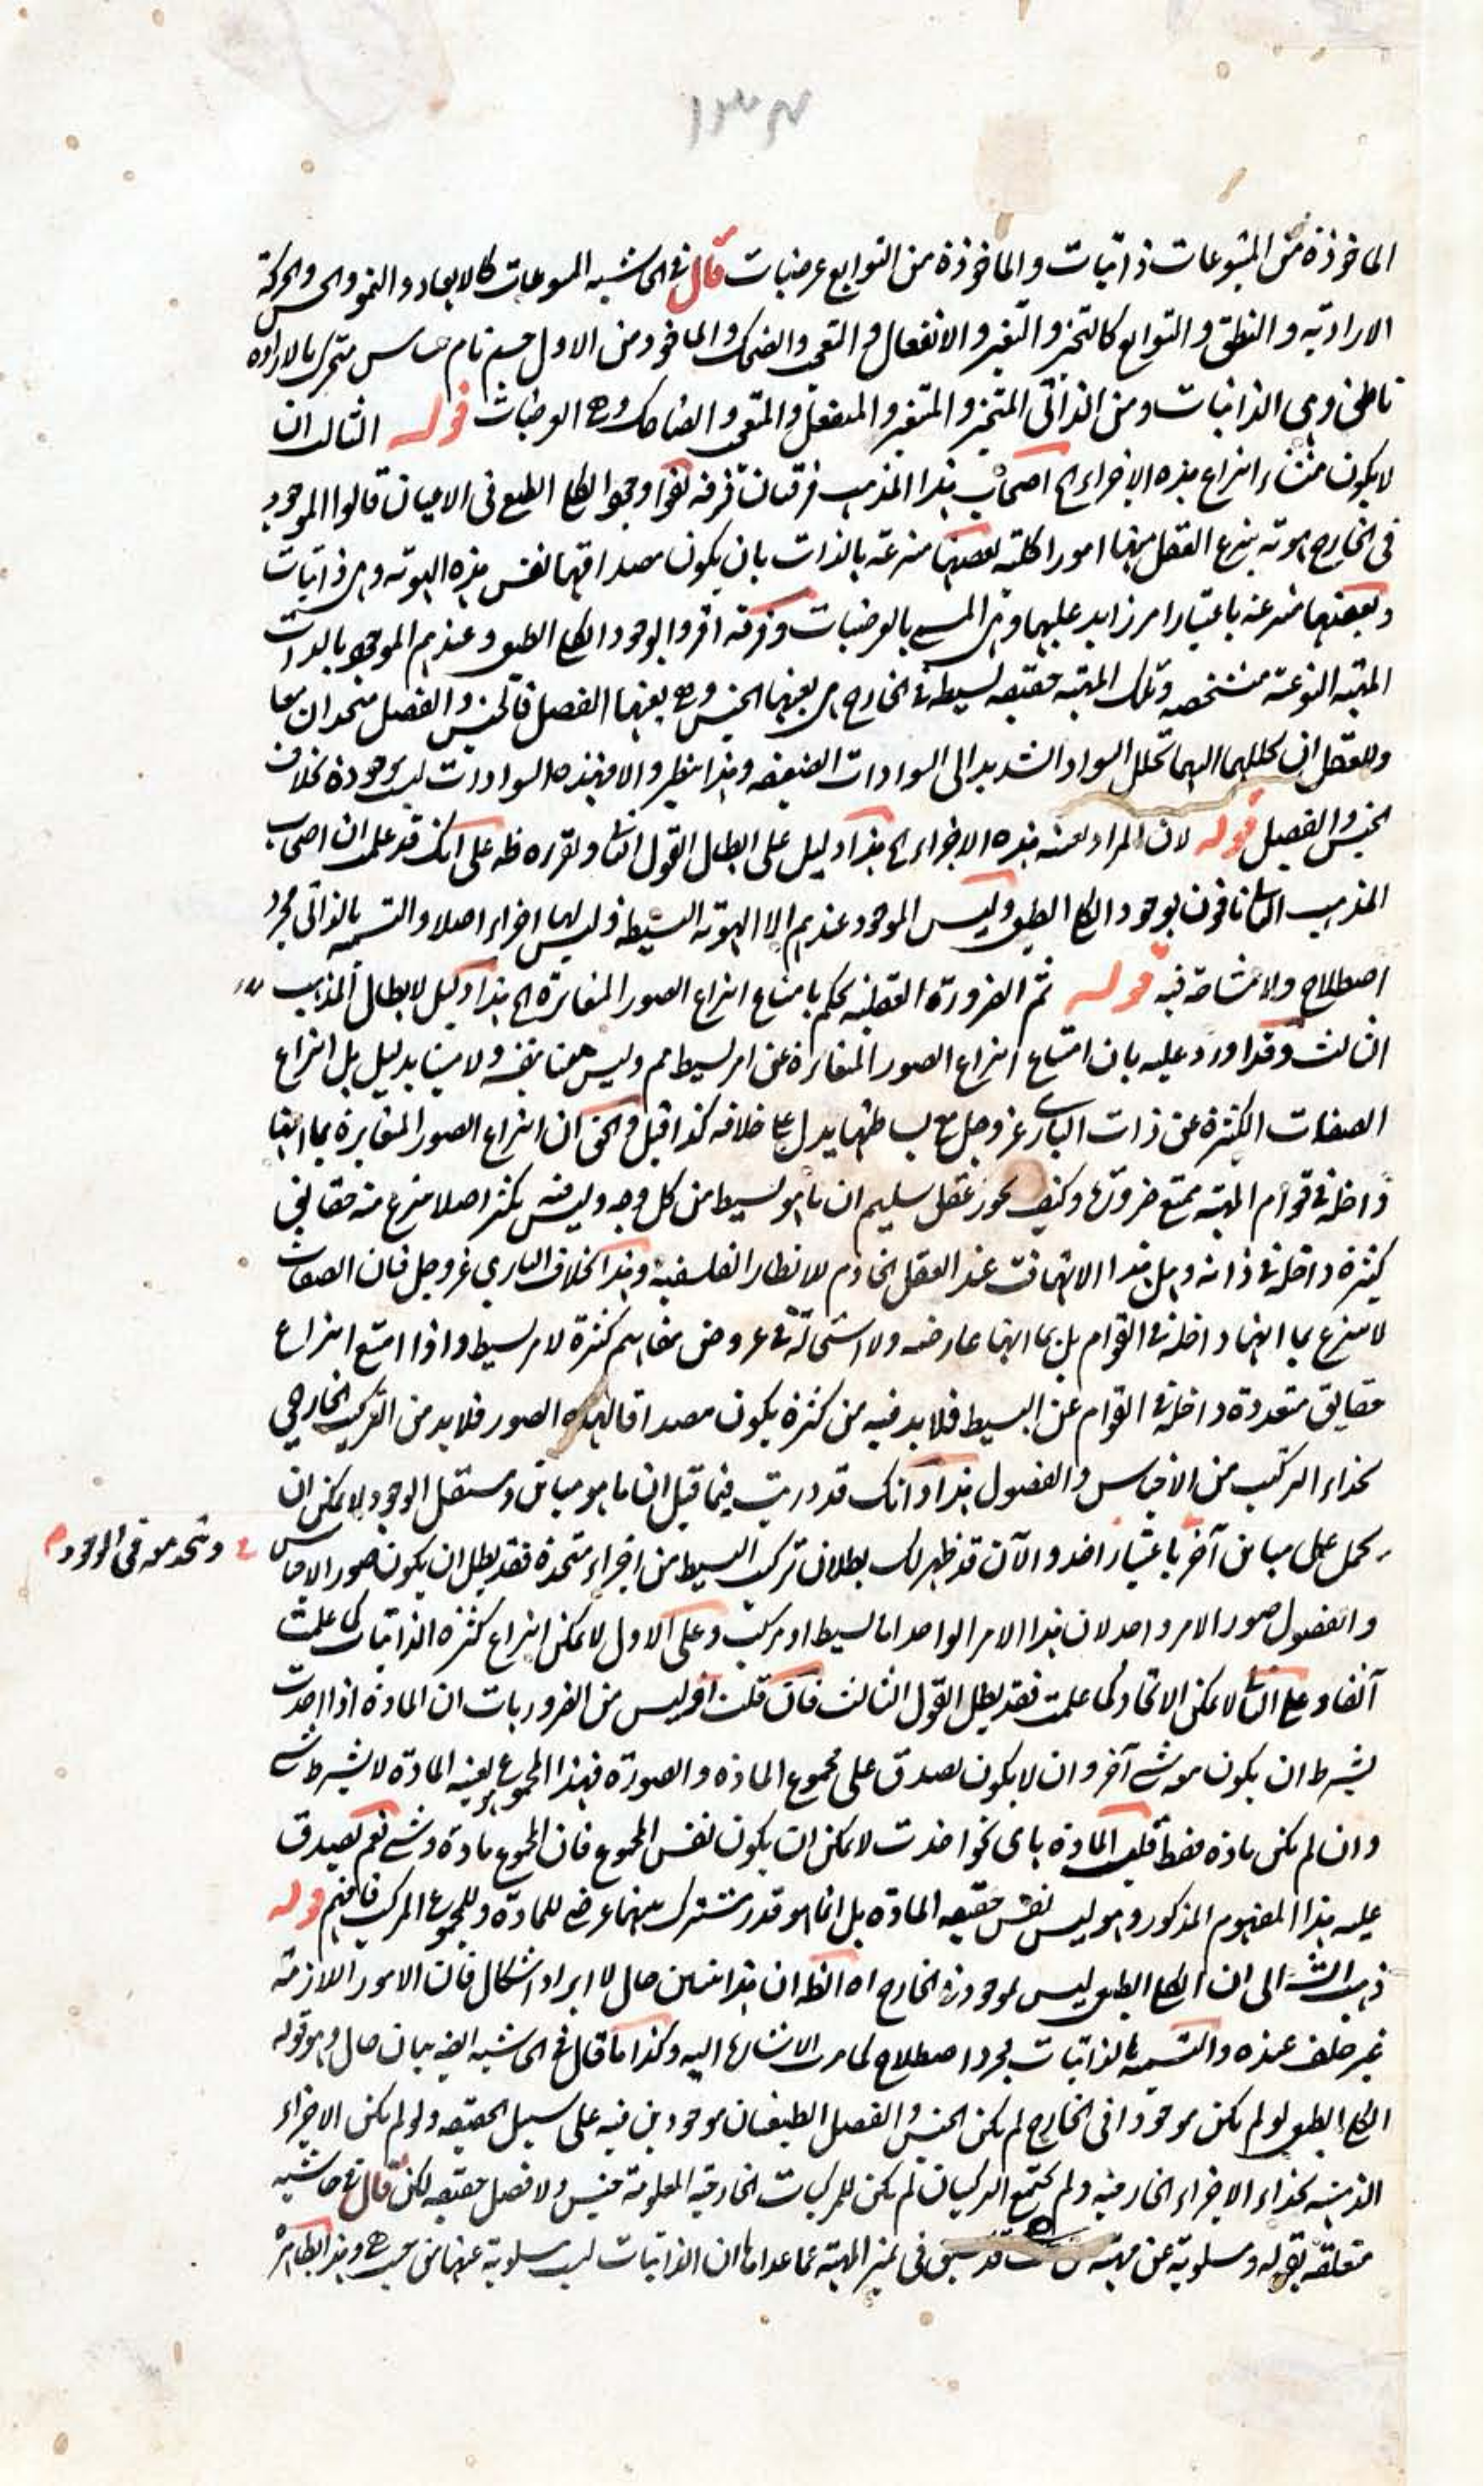 ١٣٤
الماخوذة من المتبوعات ذاتيات والماخوذة من التوابع عرضيات قال فى الحاشيه المتبوعات كالابعاد والنمو والحس والحركة
الاراديه والنطق والتوابع كالتحيز والتغير والانفعال والتعجب والضحك والماخوذ من الاول جسم نام حساس متحرك بالاراده
ناطق وهى الذاتيات ومن الثانى المتحيز والمتغير والمنفعل والمتعجب والضاحك وهى العرضيات قوله الثالث ان
لا يكون منشاء انتزاع هذه الاجزاء الخ اصحاب هذا المذهب فرقتان فرقه نفوا وجود الكلى الطبعى فى الاعيان قالوا الموجود
فى الخارج هويّه ينتزع العقل منها امورا كليّه بعضها منتزعه بالذات بان يكون مصداقها نفس هذه الهويّه وهى ذاتيات
وبعضها منتزعه باعتبار امر زايد عليها وهى المسمى بالعرضيات وفرقه اقروا بوجود الكلى الطبعى وعندهم الموجود بالذات
المهيّه النوعيّه متشخصه وتلك المهيّه حقيقه بسيطه فى الخارج هى بعينها الجنس وهى بعينها الفصل فالجنس والفصل متحدان معا
وللعقل ان يحللهما اليهما تحلل السواد الشديد الى السوادات الضعيفه وهذا ينظر والا فهذه السوادات ليست موجودة بخلاف
الجنس والفصل قوله لان المراد بعينه هذه الاجزاء الخ هذا دليل على ابطال القول الثانى وتقريره ظه على انك قد علمت ان اصحاب
المذهب الثانى نافون بوجود الكلى الطبعى وليس الموجود عندهم الا الهويّه البسيطه وليس لها اجزاء اصلا والتسميه بالذاتى مجرد
اصطلاح ولا مشاحة فيه قوله ثم الضرورة العقليه تحكم بامتناع انتزاع الصور المتغايرة الخ هذا دليل لابطال المذهب
الثالث وقد اورد عليه بان امتناع انتزاع الصور المتغايرة عن امر بسيط مم وليس بينا بنفسه ولا مبينا بدليل بل انتزاع
الصفات الكثيرة عن ذات البارى عز وجل مع بساطتها يدل على خلافه كذا قيل والحق ان انتزاع الصور المتغايرة بما انها
داخله فى قوام المهيّه ممتنع ضرورة وكيف يجوز عقل سليم ان ما هو بسيط من كل وجه وليس فيه تكثر اصلا منتزع منه حقايق
كثيرة داخله فى ذاته وهل هذا الا تهافت عند العقل الخادم للانظار الفلسفيه وهذا بخلاف البارى عز وجل فان الصفات
لا تنتزع بما انها داخله فى القوام بل بما انها عارضه ولا استحالة فى عروض مفاهيم كثيرة لامر بسيط واذا امتنع انتزاع
حقايق متعددة داخله فى القوام عن البسيط فلا بد فيه من كثرة يكون مصداقا لهذه الصور فلا بد من التركيب الخارجى
بحذاء التركيب من الاجناس والفصول هذا وانك قد دريت فيما قبل ان ما هو مباين ومستقل الوجود لا يمكن ان
يحمل على مباين آخر باعتبار اخذ والآن قد ظهر لك بطلان تركب البسيط من اجزاء متحدة فقد بطل ان يكون صور الاجناس
ويتحد معه فى الوجود
والفصول صور الامر واحد لان هذا الامر الواحد اما بسيط او مركب وعلى الاول لا يمكن انتزاع كثرة الذاتيات كما علمت
آنفا وعلى الثانى لا يمكن الاتحاد كما علمت فقد بطل القول الثالث فان قلت اوليس من الضروريات ان المادة اذا اخذت
بشرط ان يكون معه شى آخر وان لا يكون تصدق على مجموع المادة والصورة فهذا المجموع هو بعينه المادة لا بشرط شى
وان لم يكن مادة فقط قلت المادة باى نحو اخذت لا يمكن ان يكون نفس المجموع فان المجموع مادة وشى نعم يصدق
عليه هذا المفهوم المذكور وهو ليس نفس حقيقه المادة بل انما هو قدر مشترك بينهما عرضى للمادة وللمجموع المركب فافهم قوله
ذهب الش الى ان الكلى الطبعى ليس بموجود فى الخارج اه الظه ان هذا بيان حال لا ايراد اشكال فان الامور اللازمة
غير خلف عنده والتسميه بالذاتيات مجرد اصطلاح كما مرت الاشارة اليه وكذا ما قال فى الحاشيه ايضا بيان حال وهو قوله
الكلى الطبعى لو لم يكن موجودا فى الخارج لم يكن الجنس والفصل الطبعيان موجودين فيه على سبيل الحقيقه ولو لم يكن الاجزاء
الذهنيه بحذاء الاجزاء الخارجيه ولم يجتمع التركيبان لم يكن للمركبات الخارجيه المعلومة جنس ولا فصل حقيقه لكن قال فى حاشيه
متعلقه بقوله ومسلوبة عن مهيّه قد سبق فى تميز المهيّه عما عداها ان الذاتيات ليست مسلوبة عنها من حيث هى وهذا بظاهره